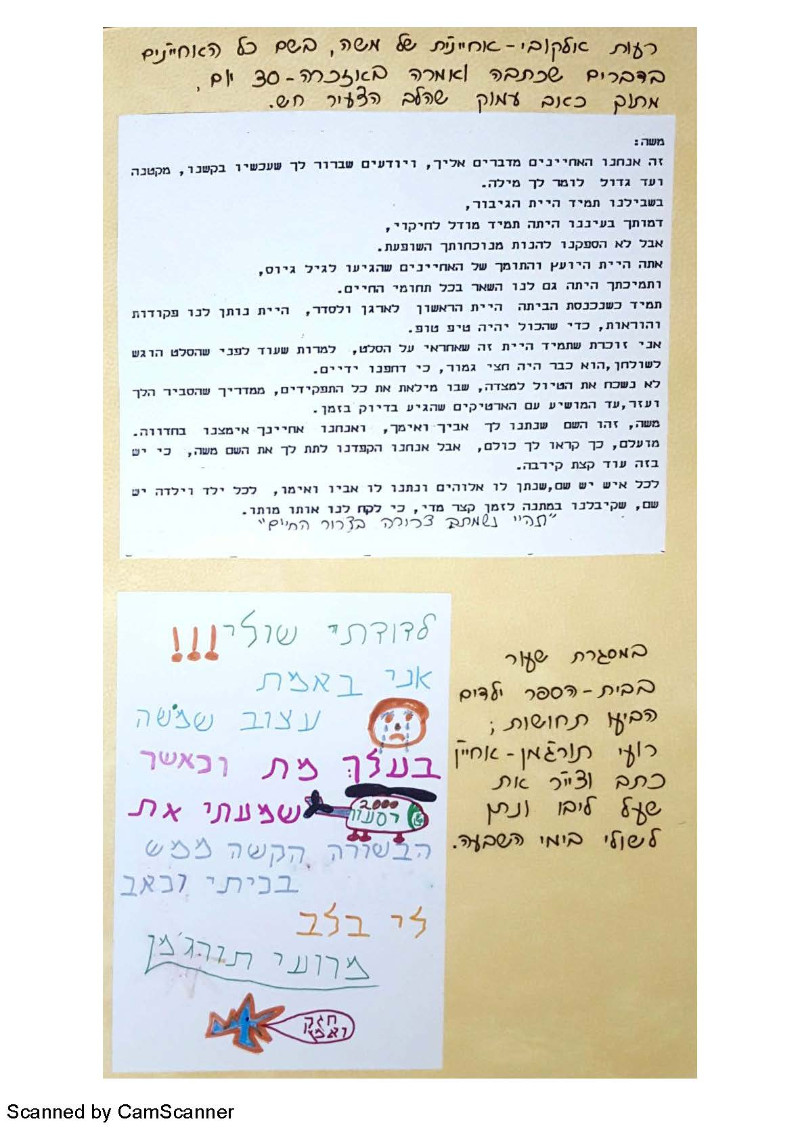 רעות אלקובי - אחיינית של משה, בשם כל האחיינים
בדברים שכתבה ואמרה באזכרה - 30 יום,
מתוך כאב עמוק שהלב הצעיר חש.
משה:
זה אנחנו האחיינים מדברים אליך, ויודעים שברור לך שעכשיו בקשנו, מקטנה
ועד גדול לומר לך מילה.
בשבילנו תמיד היית הגיבור,
דמותך בעיננו היתה תמיד מודל לחיקוי,
אבל לא הספקנו להנות מנוכחותך השופעת.
אתה היית היועץ והתומך של האחיינים שהגיעו לגיל גיוס,
ותמיכתך היתה גם לנו השאר בכל תחומי החיים.
תמיד כשנכנסת הביתה היית הראשון לארגן ולסדר, היית נותן לנו פקודות
והוראות, כדי שהכול יהיה טיפ טופ.
אני זוכרת שתמיד היית זה שאחראי על הסלט, למרות שעוד לפני שהסלט הוגש
לשולחן,הוא כבר היה חצי גמור, כי דחפנו ידיים.
לא נשכח את הטיול למצדה, שבו מילאת את כל התפקידים, ממדריך שהסביר הלך
ועזר,עד המושיע עם הארטיקים שהגיע בדיוק בזמן.
משה, זהו השם שנתנו לך אביך ואימך, ואנחנו אחיינך אימצנו בחדווה.
מועלם, כך קראו לך כולם, אבל אנחנו הקפדנו לתת לך את השם משה, כי יש
בזה עוד קצת קירבה.
לכל איש יש שם,שנתן לו אלוהים ונתנו לו אביו ואימו, לכל ילד וילדה יש
שם, שקיבלנו במתנה לזמן קצר מדי, כי לקח לנו אותו מותו.
"תהיי נשמתם צרורה בצרור החיים"
לדודתי שולי!!!
אני באמת
עצוב שמשה
בעלך מת וכאשר
2000
רסער
שמעתי את
הבשורה הקשה ממש
בכיתי וכאב
לי בלב
מרועי תורג'מן
חזק
ואמץ
במסגרת שעור
בבית-הספר ילדים
הביעו תחושות;
רועי תורג'מן-אחיין
כתב וצייר את
שעל ליבו ונתן
לשולי בימי השבעה.
Scanned by CamScanner